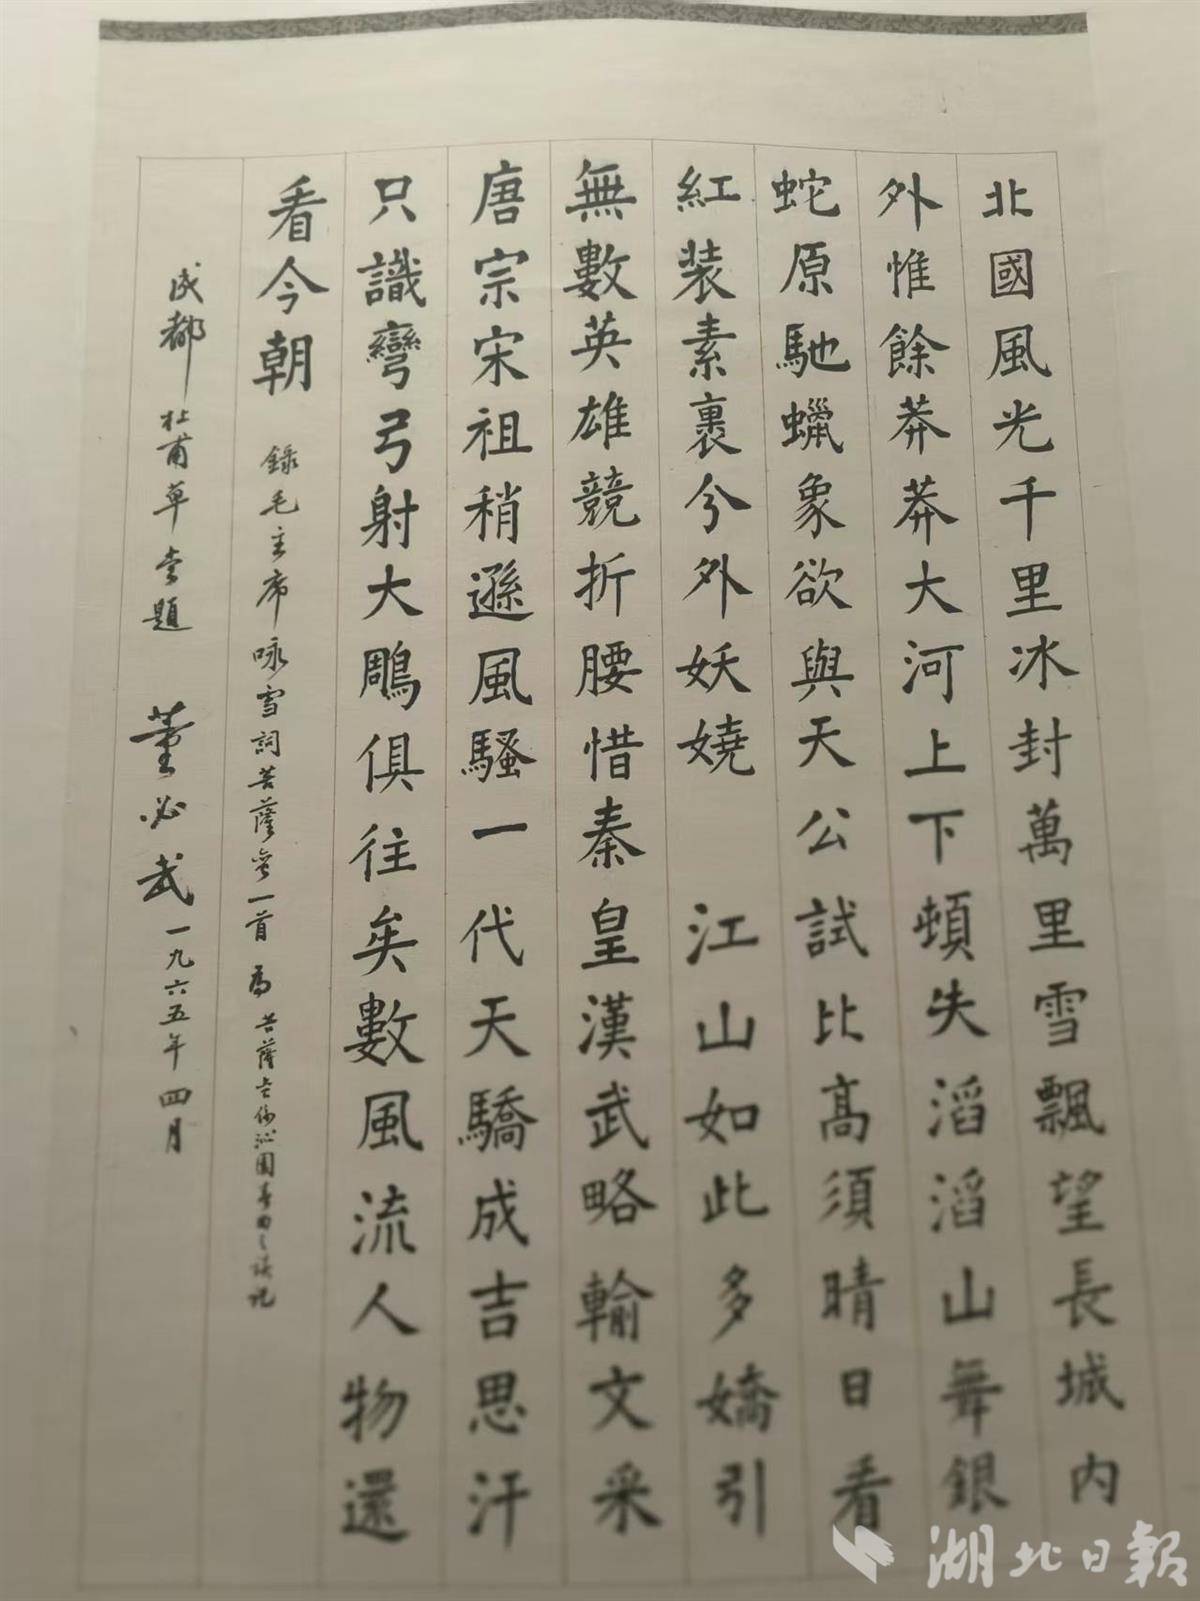 北國風光千里冰封萬里雪飄望長城内
外惟餘莽莽大河上下頓失滔滔山舞銀
蛇原馳蠟象欲與天公試比高須晴日看
紅装素裹兮外妖嬈 江山如此多嬌引
無數英雄競折腰惜秦皇漢武略輸文采
唐宗宋祖稍遜風騷一代天驕成吉思汗
只識彎弓射大鵰俱往矣數風流人物還
看今朝 錄毛主席咏雪詞菩薩蛮一首 為 菩薩 沁園春 之誤記
成都杜甫草堂題 董必武 一九六五年四月
湖北日報